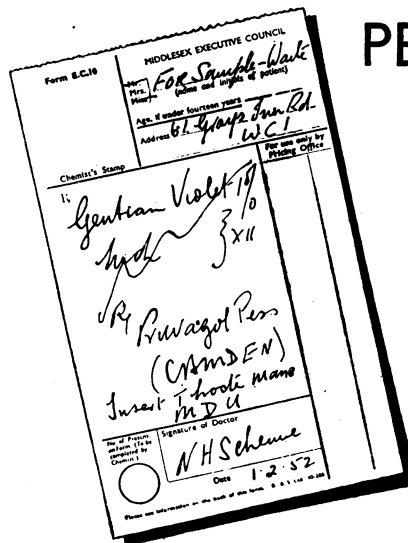 PE
Form E.C.10
MIDDLESEX EXECUTIVE COUNCIL
Mr.
Mrs.
Miss
For Sample-Waite
(name and initials of patient)
Age, if under fourteen years
Address 61. Grays Inn Rd.
W.C.1
Chemist's Stamp
For use only by
Pricing Office
Gentian Violet 1%
XII
Pruvagol Pess
(CAMDEN)
Insert T nocte mane
MDU
No. of Prescns.
on Form (To be
completed by
Chemist)
Signature of Doctor
NHScheme
Date 1.2.52
Please see information on the back of this form.